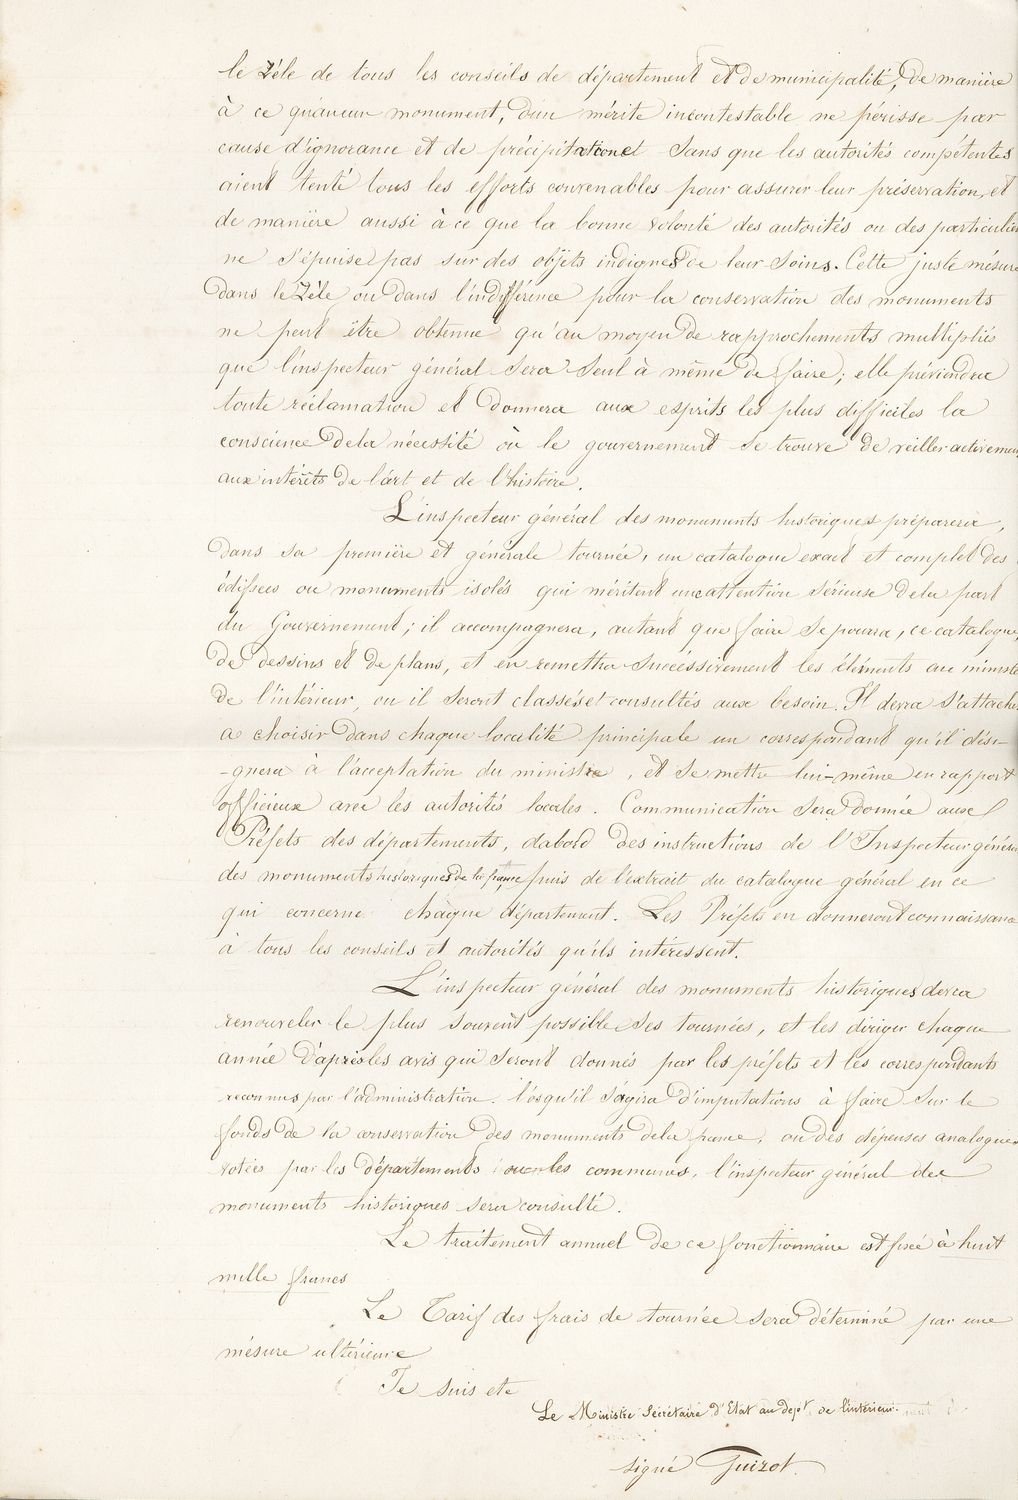 le Zéle de tous les conseils de département et de municipalité, de manière
à ce qu'aucun monument, d'un mérite incontestable ne périsse par
cause d'ignorance et de précipitation et Sans que les autorités compétentes
aient tenté tous les efforts convenables pour assurer leur préservation, et
de manière aussi à ce que la bonne volonté des autorités ou des particulier
ne s'épuise pas sur des objets indignes de leur Soins. Cette juste mésure
dans le Zéle ou dans l'indifférence pour la conservation des monuments
ne peut être obtenue qu'au moyen de rapprochements multipliés
que l'inspecteur général Sera Seul à même de faire; elle préviendra
toute réclamation et donnera aux esprits les plus difficiles la
conscience de la nécessité où le gouvernement se trouve de veiller activement
aux intérêts de l'art et de l'histoire.
L'inspecteur général des monuments historiques préparera,
dans sa première et générale tournée, un catalogue exact et complet des
édifices ou monuments isolés qui méritent une attention Sérieuse de la part
du Gouvernement; il accompagnera, autant que faire Se pourra, ce catalogue,
de dessins et de plans, et en remettra Succéssivement les éléments au ministè
de l'intérieur, ou il Seront classés et consultés aux besoin. Il devra S'attacher
a choisir dans chaque localité principale un correspondant qu'il dési-
-gnera à l'acceptation du ministre, et Se mettre lui-même en rapport
officieux avec les autorités locales. Communication Sera donnée aux
Préfets des départements, d'abord des instructions de l'Inspecteur généra
des monuments historiques de la france puis de l'extrait du catalogue général en ce
qui concerne chaque département. Les Préfets en donneront connaissance
à tous les conseils et autorités qu'ils intéressent.
L'inspecteur général des monuments historiques devra
renouveler le plus Souvent possible Ses tournées, et les diriger chaque
année d'après les avis qui Seront donnés par les préfets et les correspondants
reconnus par l'administration. l'osqu'il S'agira d'imputations à faire Sur le
fonds de la conservation des monuments de la france, ou des dépenses analogues
votées par les départements ou les communes, l'inspecteur général des
monuments historiques Sera consulté.
Le traitement annuel de ce fonctionnaire est fixé à huit
mille francs
Le Tarif des frais de tournée Sera déterminé par une
mésure ultérieure
Je suis etc
Le Ministre Sécrétaire d'Etat au dept. de l'intérieur.
signé Guizot.